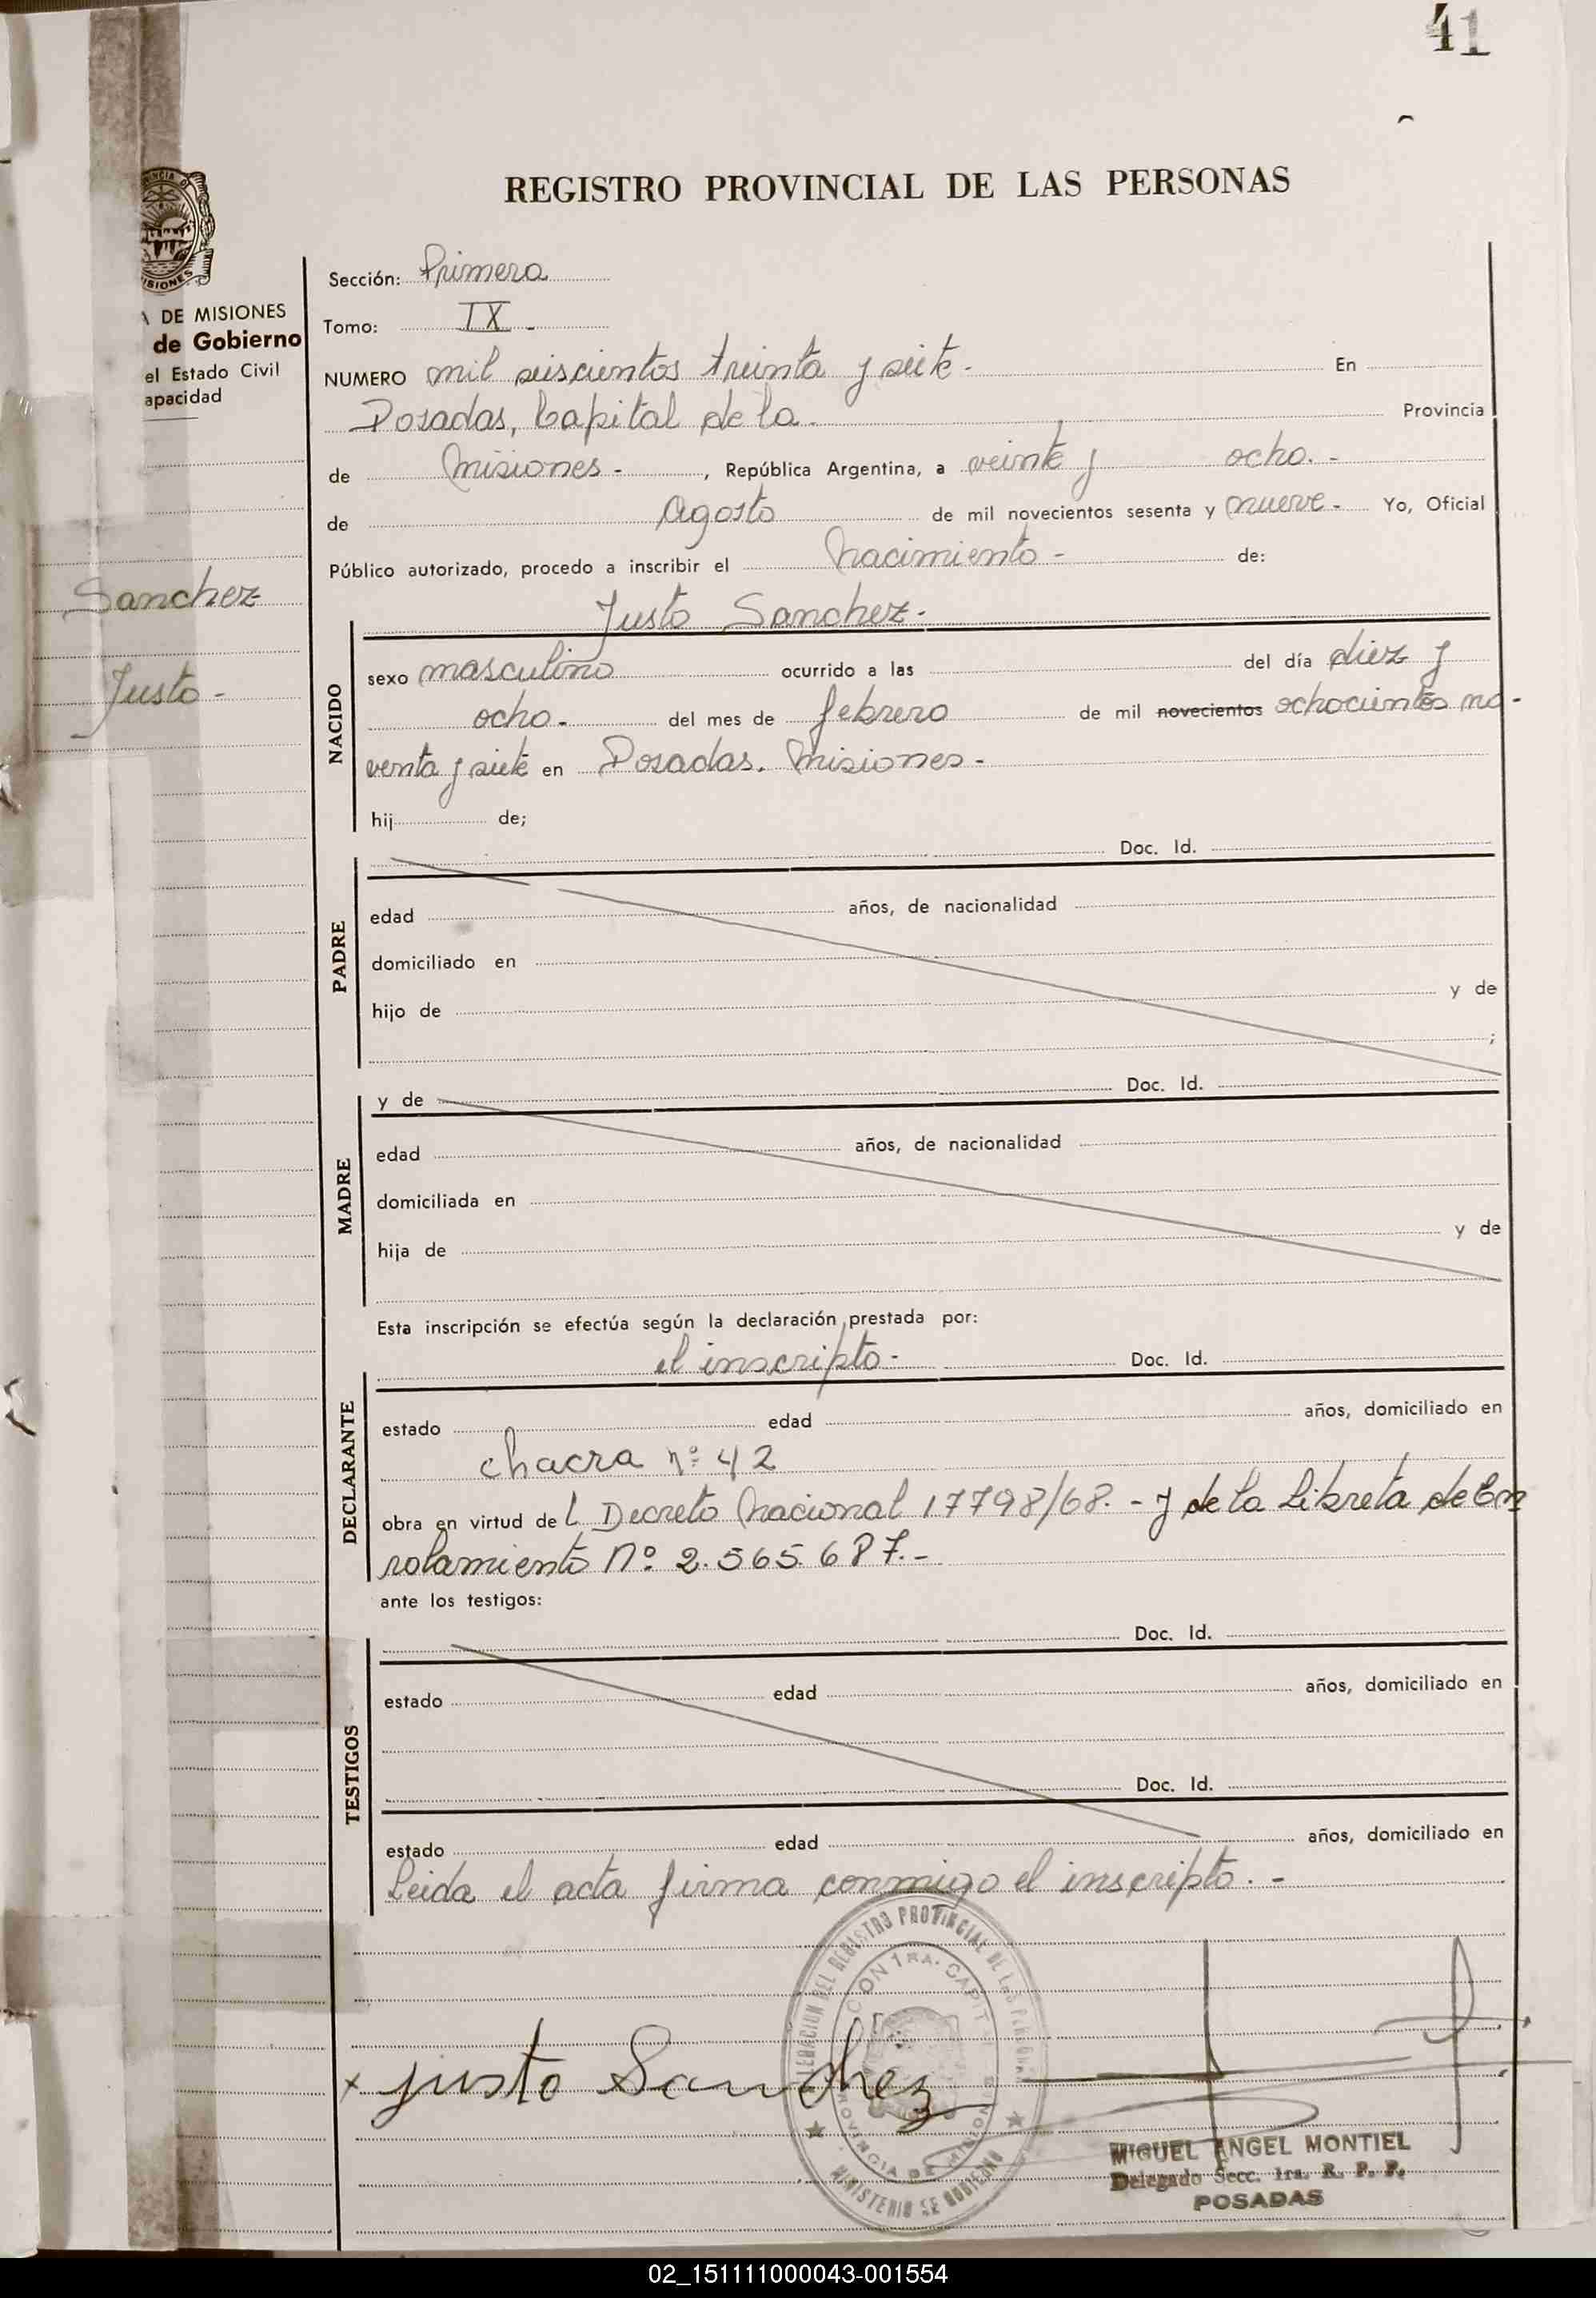 41
REGISTRO PROVINCIAL DE LAS PERSONAS
A DE MISIONES
de Gobierno
el Estado Civil
apacidad
Sanchez
Justo -
Sección: Primera
Tomo: IX -
NUMERO mil seiscientos treinta y siete - En
Posadas, Capital de la. Provincia
de Misiones - , República Argentina, a veinte y ocho. -
de Agosto de mil novecientos sesenta y nueve - Yo, Oficial
Público autorizado, procedo a inscribir el nacimiento - de:
Justo Sanchez -
NACIDO
sexo masculino ocurrido a las del día diez y
ocho - del mes de febrero de mil novecientos ochocientos no-
venta y siete en Posadas. Misiones -
hij de;
PADRE
Doc. Id.
edad años, de nacionalidad
domiciliado en
hijo de y de
;
MADRE
y de Doc. Id.
edad años, de nacionalidad
domiciliada en
hija de y de
Esta inscripción se efectúa según la declaración prestada por:
DECLARANTE
el inscripto - Doc. Id.
estado edad años, domiciliado en
chacra nº 42
obra en virtud de l Decreto Nacional 17798/68. - y de la Libreta de En
rolamiento Nº 2.565.687. -
ante los testigos:
TESTIGOS
Doc. Id.
estado edad años, domiciliado en
Doc. Id.
estado edad años, domiciliado en
Leida el acta firma conmigo el inscripto. -
x justo Sanchez
MIGUEL ANGEL MONTIEL
Delegado Secc. 1ra. R. P. P.
POSADAS
02_151111000043-001554